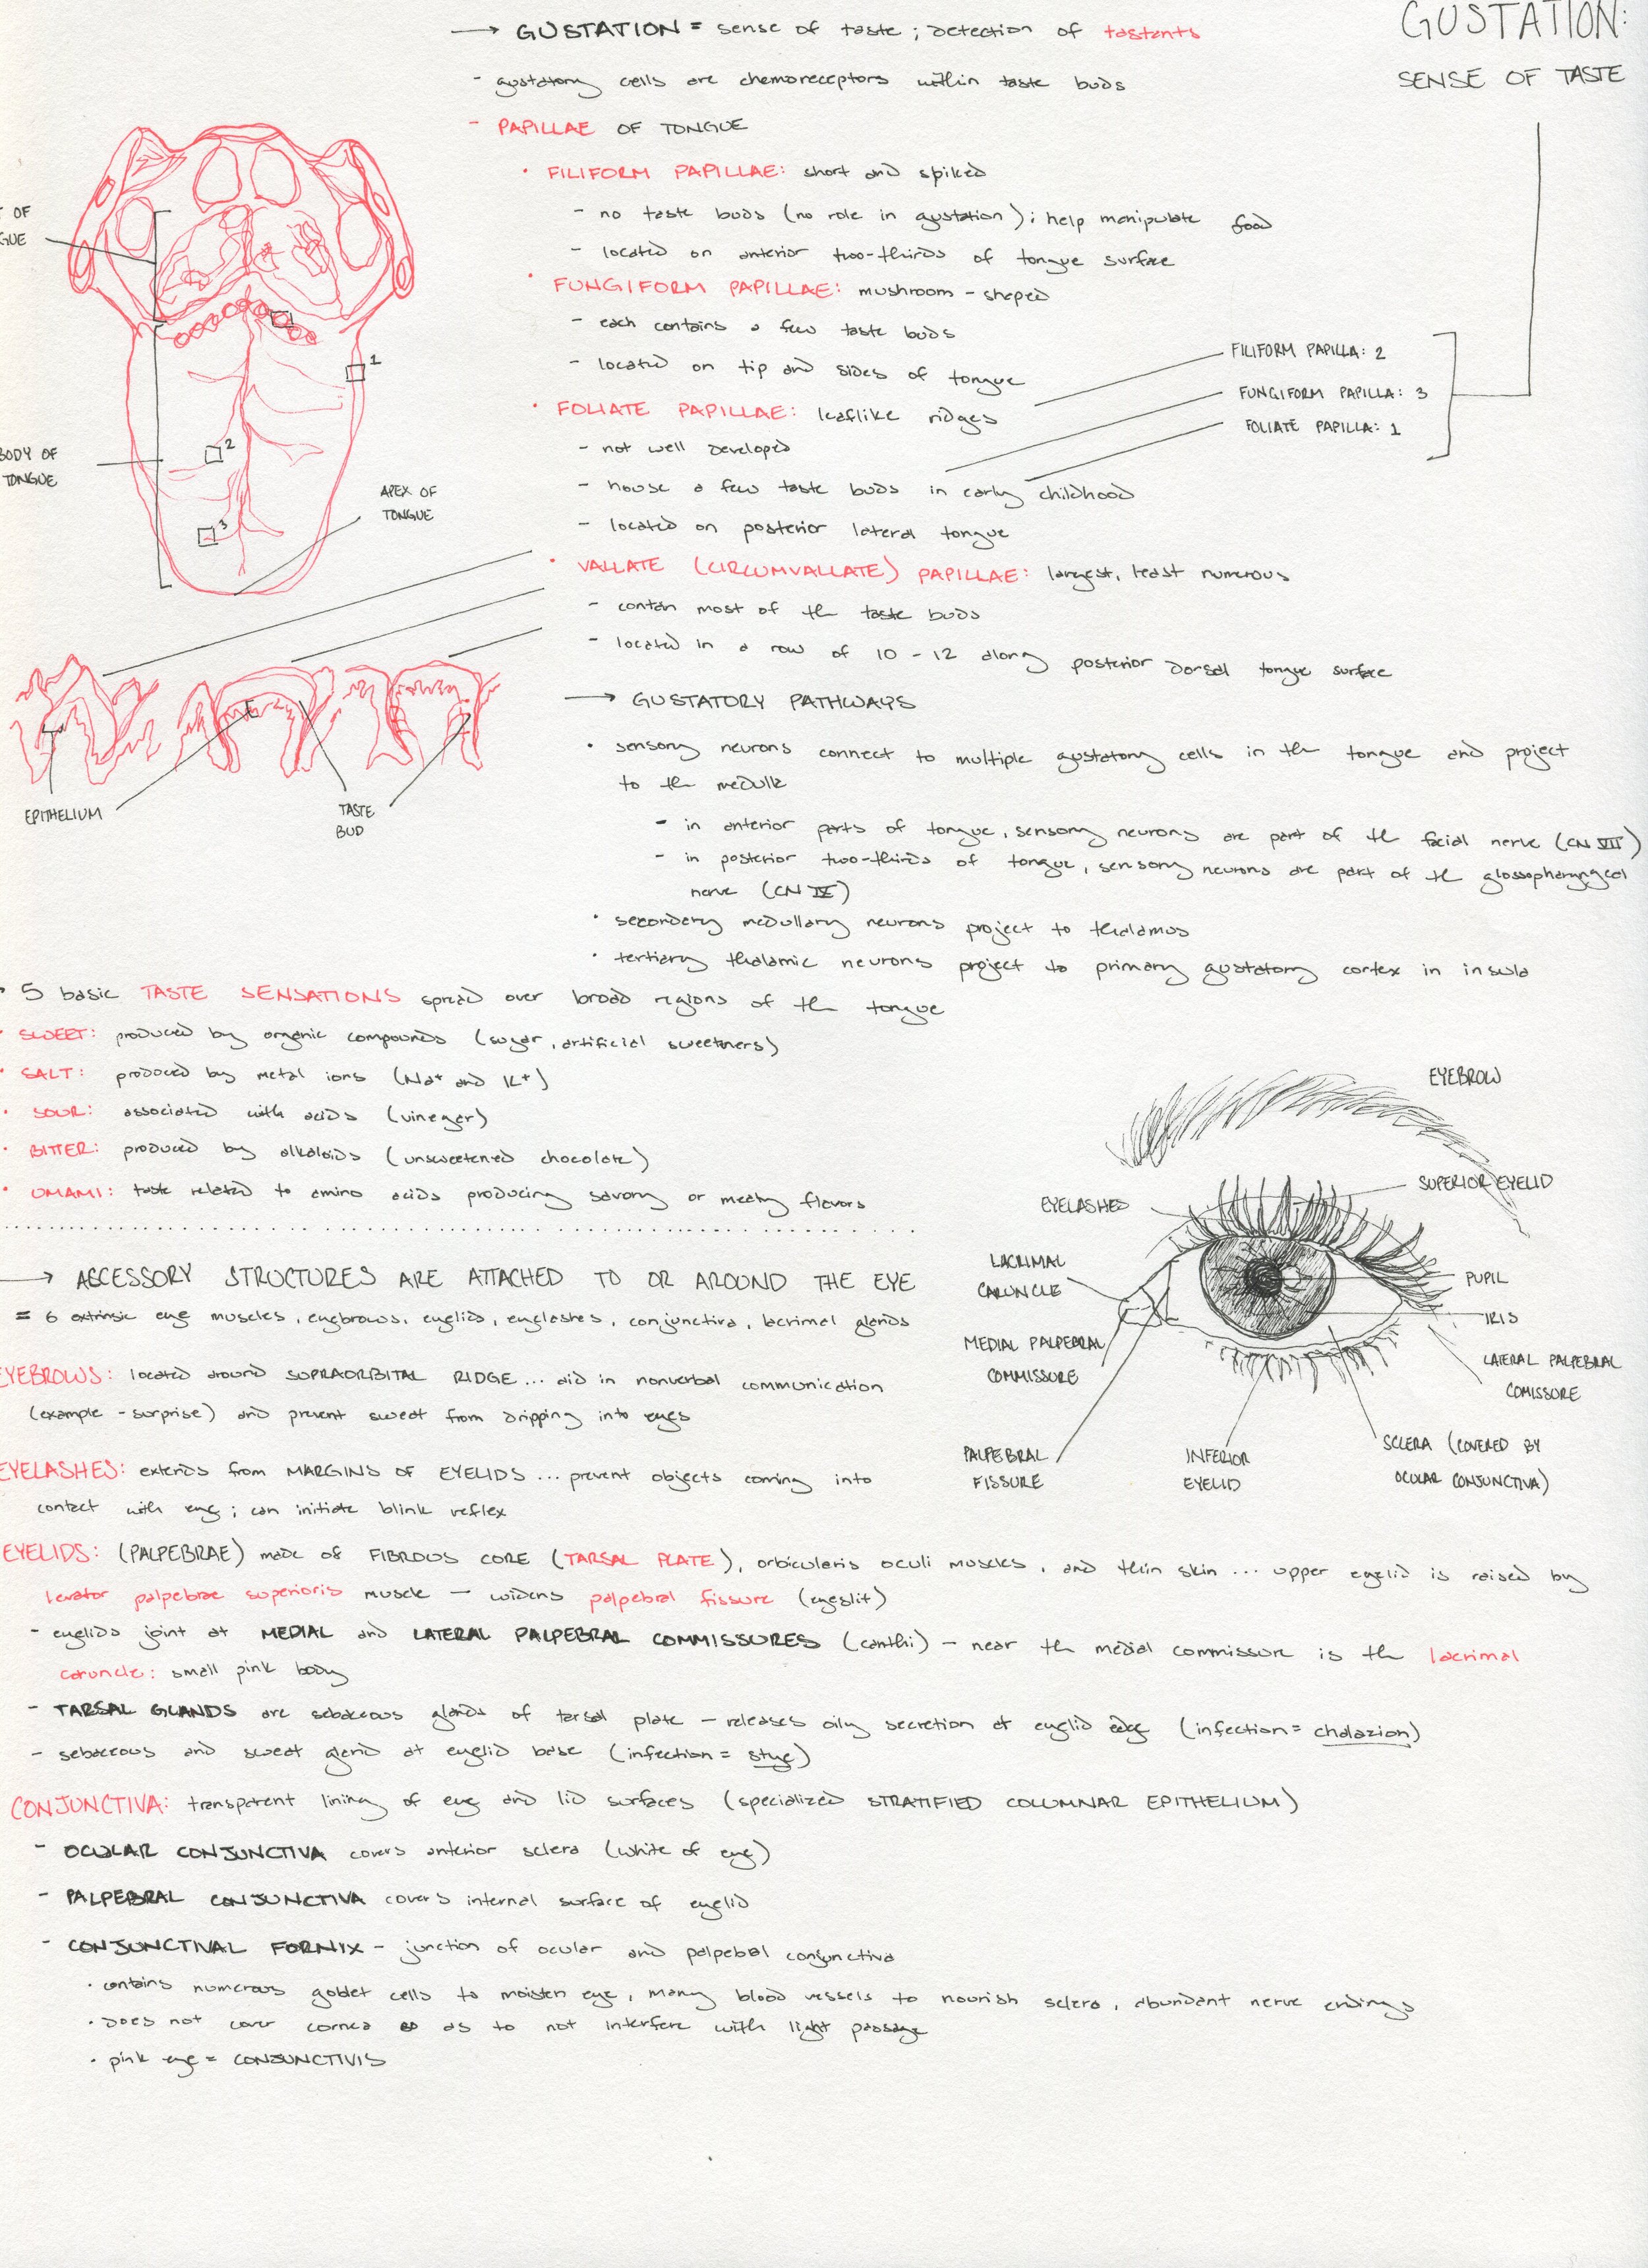 GUSTATION:
SENSE OF TASTE
→ GUSTATION = sense of taste ; detection of tastants
- gustatory cells are chemoreceptors within taste buds
- PAPILLAE OF TONGUE
• FILIFORM PAPILLAE: short and spiked
- no taste buds (no role in gustation); help manipulate food
- located on anterior two-thirds of tongue surface
• FUNGIFORM PAPILLAE: mushroom-shaped
- each contains a few taste buds
- located on tip and sides of tongue
• FOLIATE PAPILLAE: leaflike ridges
- not well developed
- house a few taste buds in early childhood
- located on posterior lateral tongue
• VALLATE (CIRCUMVALLATE) PAPILLAE: largest, least numerous
- contain most of the taste buds
- located in a row of 10-12 along posterior dorsal tongue surface
FILIFORM PAPILLA: 2
FUNGIFORM PAPILLA: 3
FOLIATE PAPILLA: 1
OF
GUE
1
2
3
BODY OF
TONGUE
APEX OF
TONGUE
EPITHELIUM
TASTE
BUD
→ GUSTATORY PATHWAYS
• sensory neurons connect to multiple gustatory cells in the tongue and project
to the medulla
- in anterior parts of tongue, sensory neurons are part of the facial nerve (CN VII)
- in posterior two-thirds of tongue, sensory neurons are part of the glossopharyngeal
nerve (CN IX)
• secondary medullary neurons project to thalamus
• tertiary thalamic neurons project to primary gustatory cortex in insula
• 5 basic TASTE SENSATIONS spread over broad regions of the tongue
• SWEET: produced by organic compounds (sugar, artificial sweetners)
• SALT: produced by metal ions (Na+ and K+)
• SOUR: associated with acids (vinegar)
• BITTER: produced by alkaloids (unsweetened chocolate)
• UMAMI: taste related to amino acids producing savory or meaty flavors
→ ACCESSORY STRUCTURES ARE ATTACHED TO OR AROUND THE EYE
= 6 extrinsic eye muscles, eyebrows, eyelids, eyelashes, conjunctiva, lacrimal glands
EYEBROWS: located around SUPRAORBITAL RIDGE... aid in nonverbal communication
(example - surprise) and prevent sweat from dripping into eyes
EYELASHES: extends from MARGINS OF EYELIDS... prevent objects coming into
contact with eye; can initiate blink reflex
EYEBROW
SUPERIOR EYELID
EYELASHES
LACRIMAL
CARUNCLE
PUPIL
IRIS
MEDIAL PALPEBRAL
COMMISSURE
LATERAL PALPEBRAL
COMISSURE
PALPEBRAL
FISSURE
INFERIOR
EYELID
SCLERA (COVERED BY
OCULAR CONJUNCTIVA)
EYELIDS: (PALPEBRAE) made of FIBROUS CORE (TARSAL PLATE), orbicularis oculi muscles, and thin skin... upper eyelid is raised by
levator palpebrae superioris muscle — widens palpebral fissure (eyeslit)
- eyelids joint at MEDIAL and LATERAL PALPEBRAL COMMISSURES (canthi) - near the medial commissure is the lacrimal
caruncle: small pink body
- TARSAL GLANDS are sebaceous glands of tarsal plate - releases oily secretion at eyelid edge (infection = chalazion)
- sebaceous and sweat gland at eyelid base (infection = stye)
CONJUNCTIVA: transparent lining of eye and lid surfaces (specialized STRATIFIED COLUMNAR EPITHELIUM)
- OCULAR CONJUNCTIVA covers anterior sclera (white of eye)
- PALPEBRAL CONJUNCTIVA covers internal surface of eyelid
- CONJUNCTIVAL FORNIX - junction of ocular and palpebral conjunctiva
• contains numerous goblet cells to moisten eye, many blood vessels to nourish sclera, abundant nerve endings
• does not cover cornea so as to not interfere with light passage
• pink eye = CONJUNCTIVIS